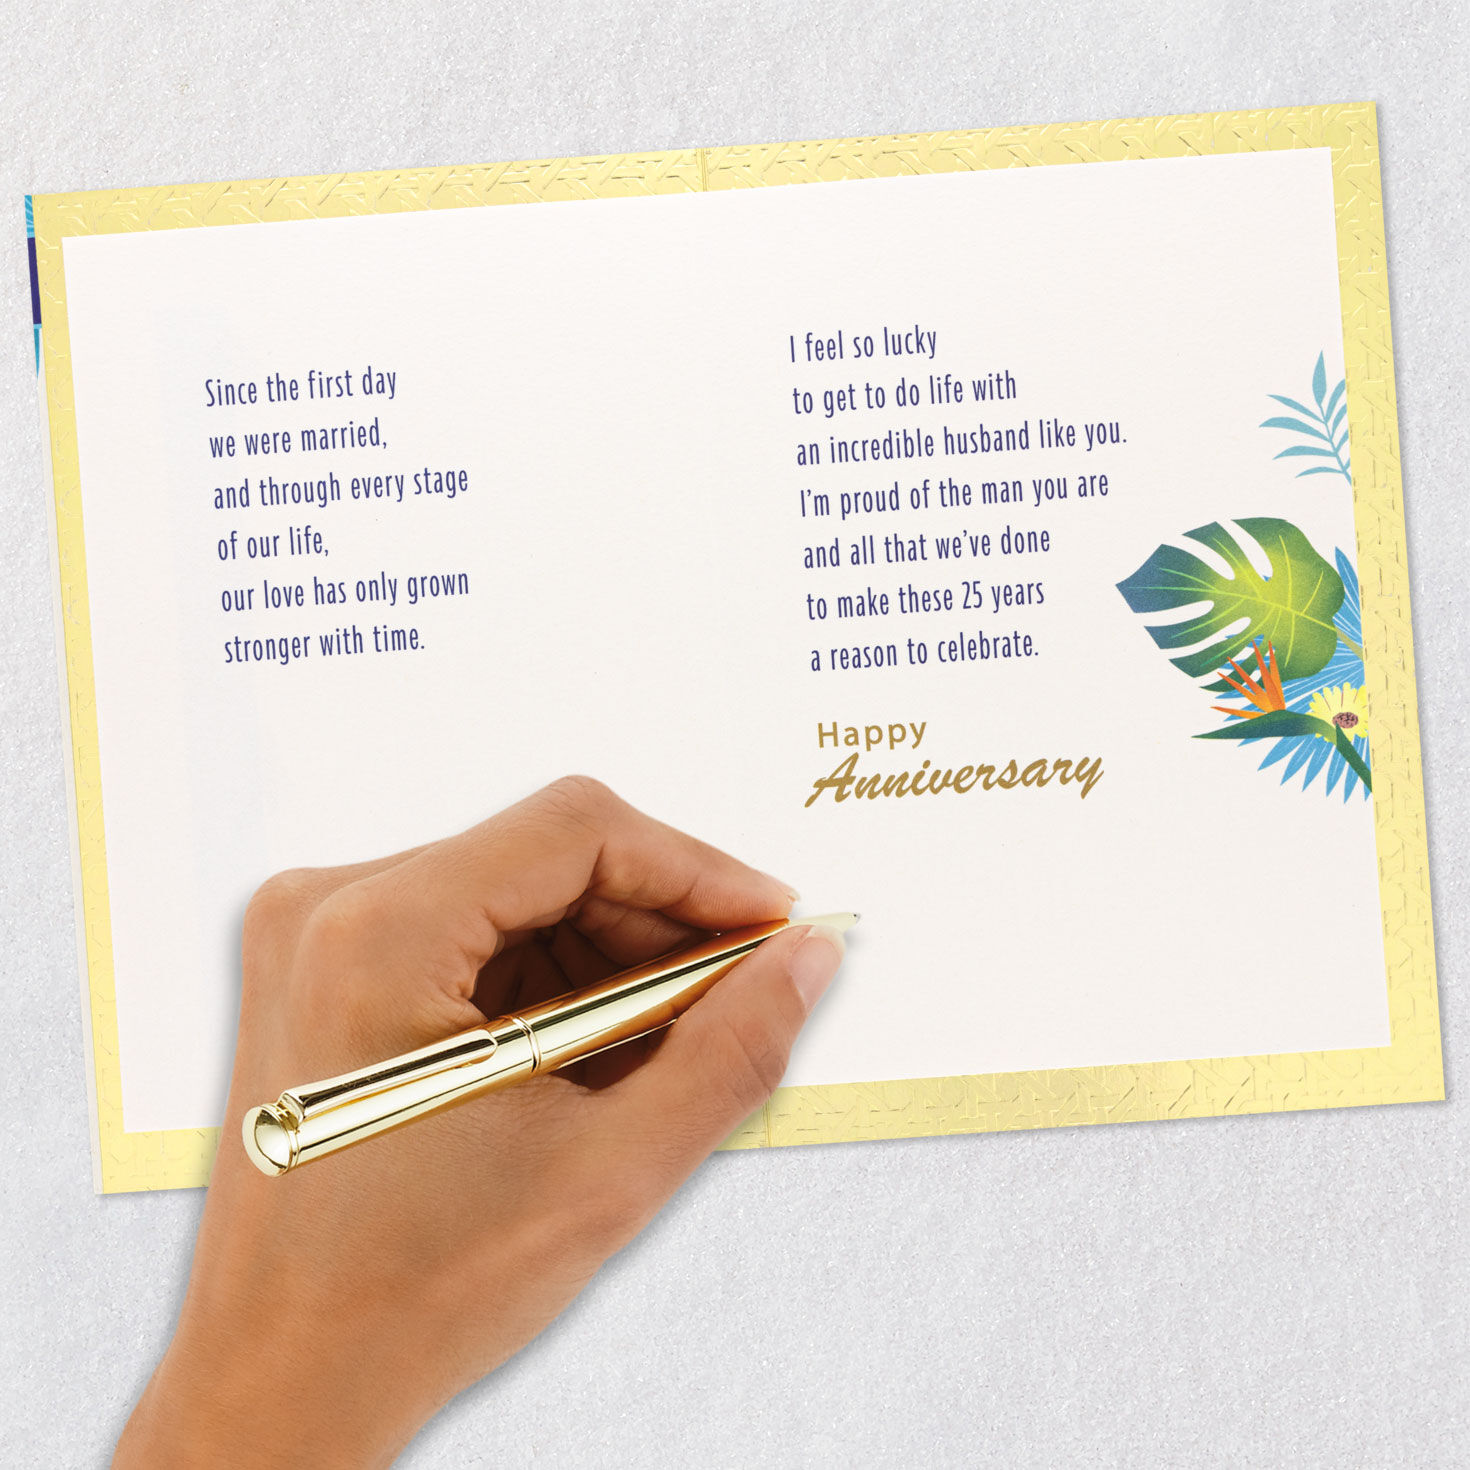 Since the first day
we were married,
and through every stage
of our life,
our love has only grown
stronger with time.
I feel so lucky
to get to do life with
an incredible husband like you.
I'm proud of the man you are
and all that we've done
to make these 25 years
a reason to celebrate.
Happy
Anniversary